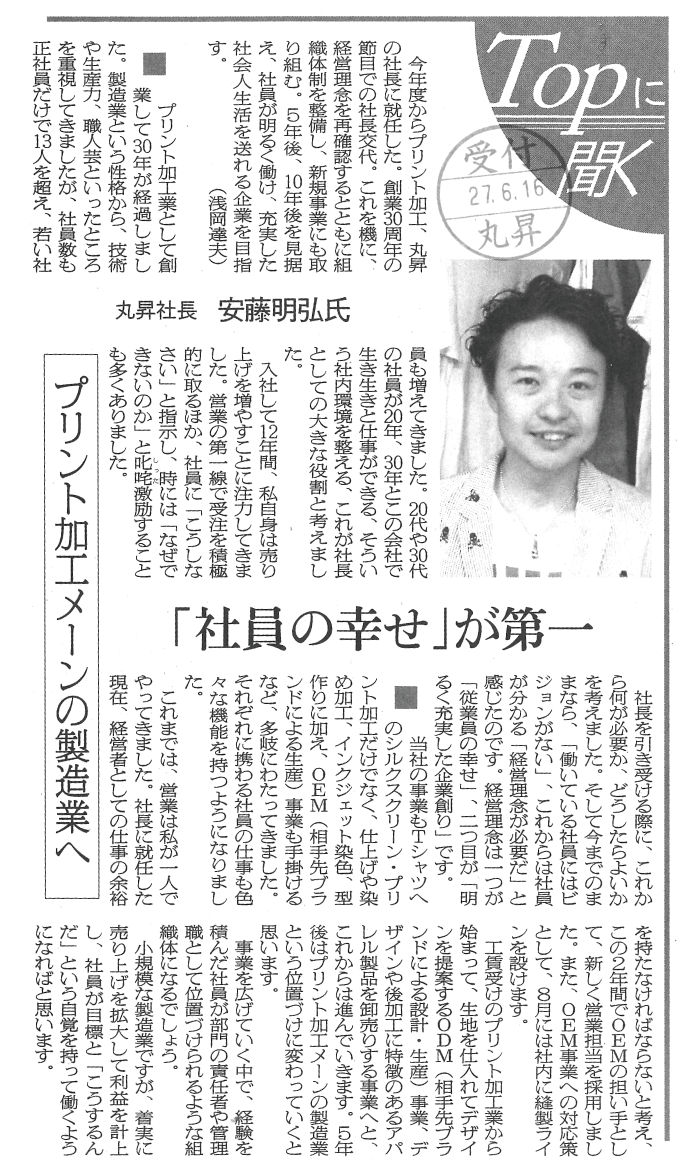 Topに
聞く
受付
27.6.16
丸昇
今年度からプリント加工、丸昇
の社長に就任した。創業30周年の
節目での社長交代。これを機に、
経営理念を再確認するとともに組
織体制を整備し、新規事業にも取
り組む。5年後、10年後を見据
え、社員が明るく働け、充実した
社会人生活を送れる企業を目指
す。
(浅岡達夫)
■
プリント加工業として創
業して30年が経過しまし
た。製造業という性格から、技術
や生産力、職人芸といったところ
を重視してきましたが、社員数も
正社員だけで13人を超え、若い社
丸昇社長 安藤明弘氏
員も増えてきました。20代や30代
の社員が20年、30年とこの会社で
生き生きと仕事ができる、そうい
う社内環境を整える、これが社長
としての大きな役割と考えまし
た。
入社して12年間、私自身は売り
上げを増やすことに注力してきま
した。営業の第一線で受注を積極
的に取るほか、社員に「こうしな
さい」と指示し、時には「なぜで
きないのか」と叱咤激励すること
しった
も多くありました。
プリント加工メーンの製造業へ
「社員の幸せ」が第一
社長を引き受ける際に、これか
ら何が必要か、どうしたらよいか
を考えました。そして今までのま
まなら、「働いている社員にはビ
ジョンがない」、これからは社員
が分かる「経営理念が必要だ」と
感じたのです。経営理念は一つが
「従業員の幸せ」、二つ目が「明
るく充実した企業創り」です。
■
当社の事業もTシャツへ
のシルクスクリーン・プリ
ント加工だけでなく、仕上げや染
め加工、インクジェット染色、型
作りに加え、OEM(相手先ブラ
ンドによる生産)事業も手掛ける
など、多岐にわたってきました。
それぞれに携わる社員の仕事も色
々な機能を持つようになりまし
た。
これまでは、営業は私が一人で
やってきました。社長に就任した
現在、経営者としての仕事の余裕
を持たなければならないと考え、
この2年間でOEMの担い手とし
て、新しく営業担当を採用しまし
た。また、OEM事業への対応策
として、8月には社内に縫製ライ
ンを設けます。
工賃受けのプリント加工業から
始まって、生地を仕入れてデザイ
ンを提案するODM(相手先ブラ
ンドによる設計・生産)事業、デ
ザインや後加工に特徴のあるアパ
レル製品を卸売りする事業へと、
これからは進んでいきます。5年
後はプリント加工メーンの製造業
という位置づけに変わっていくと
思います。
事業を広げていく中で、経験を
積んだ社員が部門の責任者や管理
職として位置づけられるような組
織体になるでしょう。
小規模な製造業ですが、着実に
売り上げを拡大して利益を計上
し、社員が目標と「こうするん
だ」という自覚を持って働くよう
になればと思います。